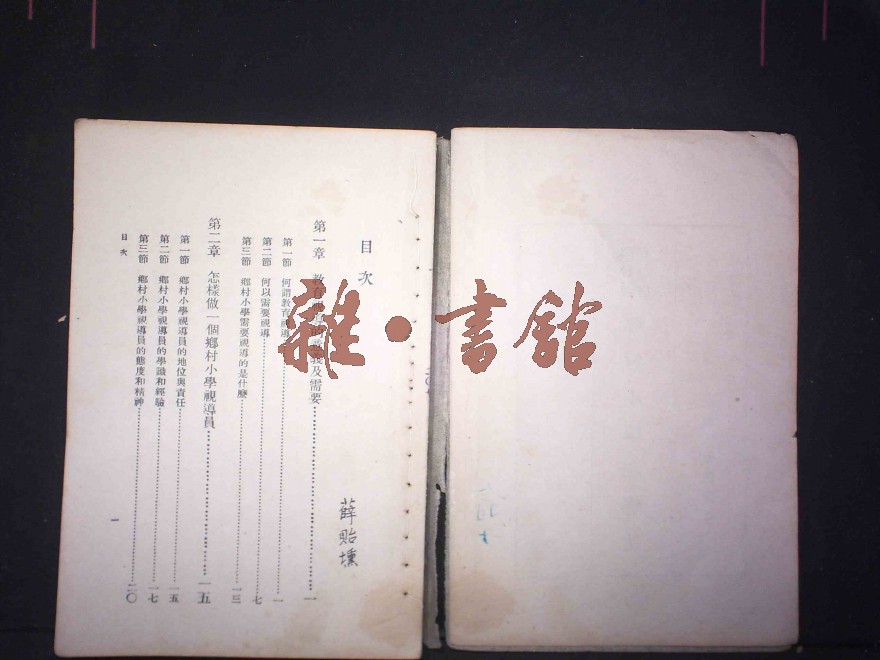 目次
第一章 教育視導的意義及需要 一
第一節 何謂教育視導 一
第二節 何以需要視導 七
第三節 鄉村小學需要視導的是什麼 一三
第二章 怎樣做一個鄉村小學視導員 一五
第一節 鄉村小學視導員的地位與責任 一五
第二節 鄉村小學視導員的學識和經驗 一七
第三節 鄉村小學視導員的態度和精神 二〇
目次 一
薛貽壎
雜·書館